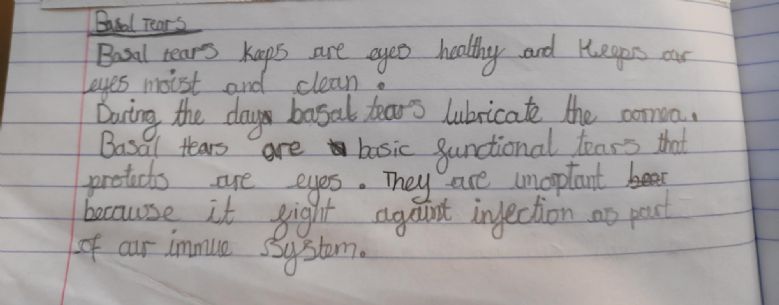 Basal Tears
Basal tears keeps are eyes healthy and keeps our
eyes moist and clean.
During the day basal tears lubricate the cornea.
Basal tears are basic functional tears that
protects are eyes. They are imoptant
because it fight against infection as part
of our immue system.